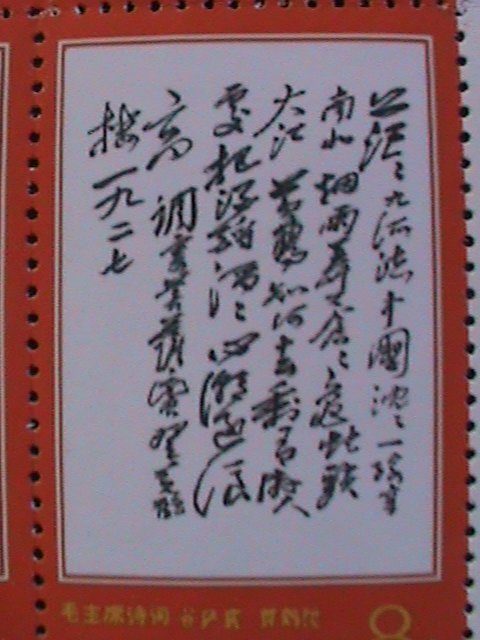 茫〻九派流中國沉〻一线穿
南北烟雨莽苍〻龟蛇锁
大江黄鹤知何去剩有遊人
處把酒酹滔〻心潮逐浪
高调寄菩萨蛮登黄鹤
楼一九二七
毛主席诗词 菩萨蛮 黄鹤楼